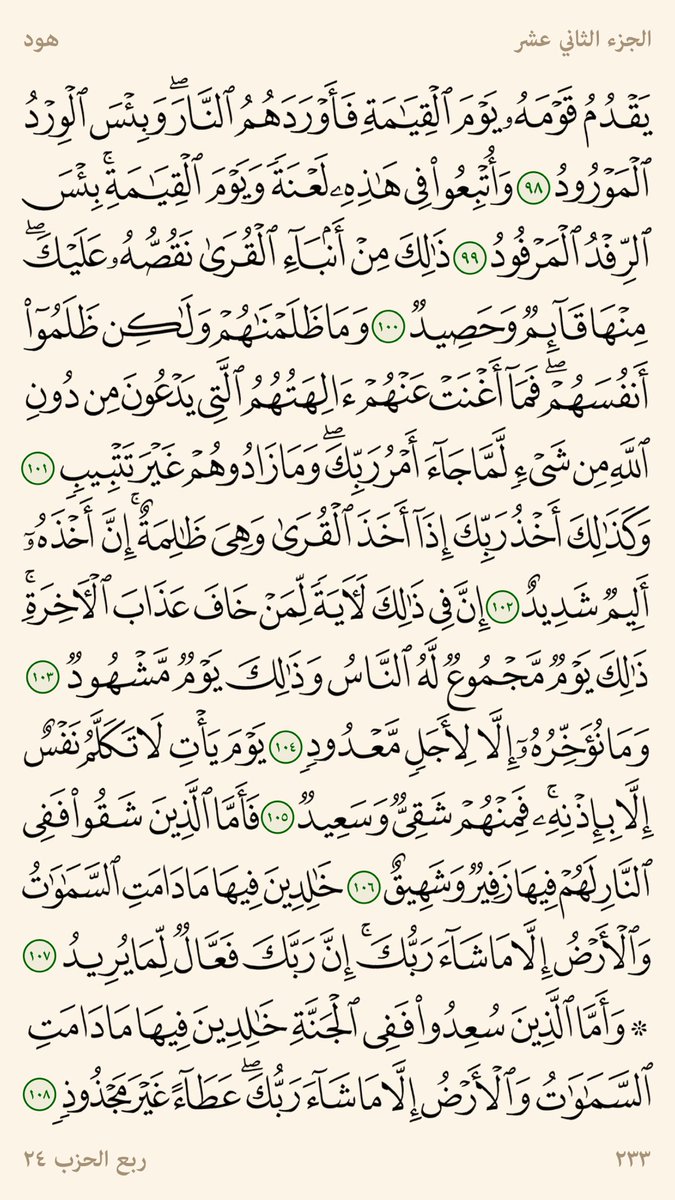 الجزء الثاني عشر
هود
يَقۡدُمُ قَوۡمَهُۥ يَوۡمَ ٱلۡقِيَٰمَةِ فَأَوۡرَدَهُمُ ٱلنَّارَۖ وَبِئۡسَ ٱلۡوِرۡدُ
ٱلۡمَوۡرُودُ ٩٨ وَأُتۡبِعُواْ فِي هَٰذِهِۦ لَعۡنَةٗ وَيَوۡمَ ٱلۡقِيَٰمَةِۚ بِئۡسَ
ٱلرِّفۡدُ ٱلۡمَرۡفُودُ ٩٩ ذَٰلِكَ مِنۡ أَنۢبَآءِ ٱلۡقُرَىٰ نَقُصُّهُۥ عَلَيۡكَۖ
مِنۡهَا قَآئِمٞ وَحَصِيدٞ ١٠٠ وَمَا ظَلَمۡنَٰهُمۡ وَلَٰكِن ظَلَمُوٓاْ
أَنفُسَهُمۡۖ فَمَآ أَغۡنَتۡ عَنۡهُمۡ ءَالِهَتُهُمُ ٱلَّتِي يَدۡعُونَ مِن دُونِ
ٱللَّهِ مِن شَيۡءٖ لَّمَّا جَآءَ أَمۡرُ رَبِّكَۖ وَمَا زَادُوهُمۡ غَيۡرَ تَتۡبِيبٖ ١٠١
وَكَذَٰلِكَ أَخۡذُ رَبِّكَ إِذَآ أَخَذَ ٱلۡقُرَىٰ وَهِيَ ظَٰلِمَةٌۚ إِنَّ أَخۡذَهُۥٓ
أَلِيمٞ شَدِيدٌ ١٠٢ إِنَّ فِي ذَٰلِكَ لَأٓيَةٗ لِّمَنۡ خَافَ عَذَابَ ٱلۡأٓخِرَةِۚ
ذَٰلِكَ يَوۡمٞ مَّجۡمُوعٞ لَّهُ ٱلنَّاسُ وَذَٰلِكَ يَوۡمٞ مَّشۡهُودٞ ١٠٣
وَمَا نُؤَخِّرُهُۥٓ إِلَّا لِأَجَلٖ مَّعۡدُودٖ ١٠٤ يَوۡمَ يَأۡتِ لَا تَكَلَّمُ نَفۡسٌ
إِلَّا بِإِذۡنِهِۦۚ فَمِنۡهُمۡ شَقِيّٞ وَسَعِيدٞ ١٠٥ فَأَمَّا ٱلَّذِينَ شَقُواْ فَفِي
ٱلنَّارِ لَهُمۡ فِيهَا زَفِيرٞ وَشَهِيقٌ ١٠٦ خَٰلِدِينَ فِيهَا مَا دَامَتِ ٱلسَّمَٰوَٰتُ
وَٱلۡأَرۡضُ إِلَّا مَا شَآءَ رَبُّكَۚ إِنَّ رَبَّكَ فَعَّالٞ لِّمَا يُرِيدُ ١٠٧
۞ وَأَمَّا ٱلَّذِينَ سُعِدُواْ فَفِي ٱلۡجَنَّةِ خَٰلِدِينَ فِيهَا مَا دَامَتِ
ٱلسَّمَٰوَٰتُ وَٱلۡأَرۡضُ إِلَّا مَا شَآءَ رَبُّكَۖ عَطَآءً غَيۡرَ مَجۡذُوذٖ ١٠٨
٢٣٣
ربع الحزب ٢٤